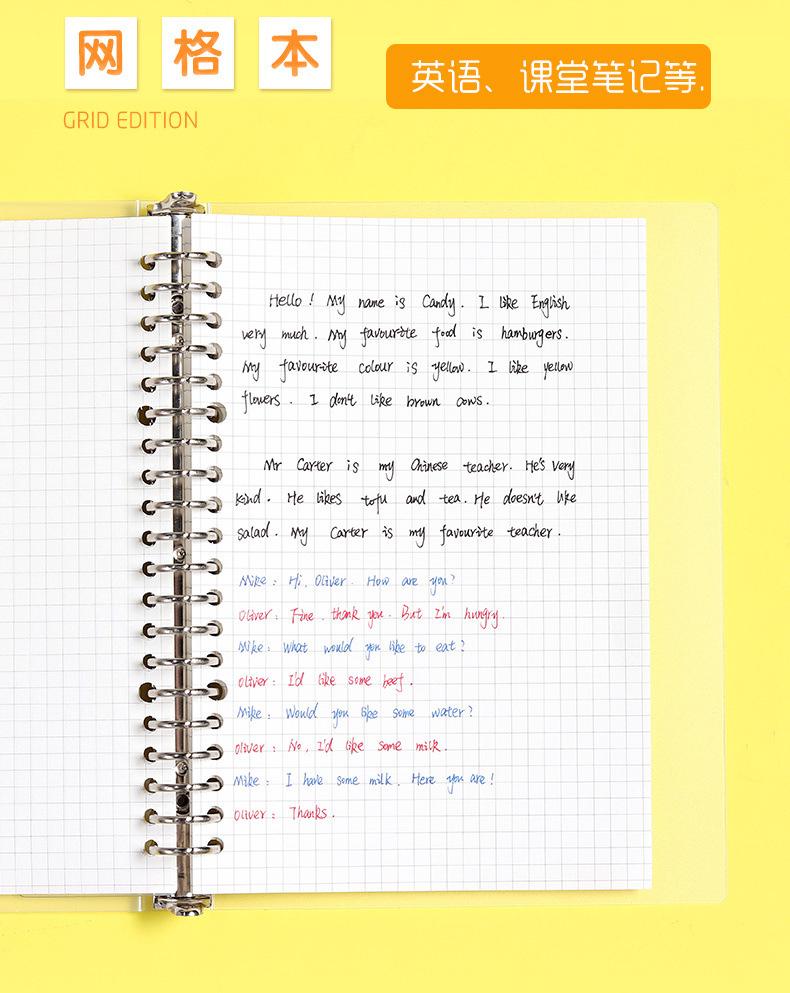 网格本
英语、课堂笔记等.
GRID EDITION
Hello! My name is Candy. I like English
very much. My favourite food is hamburgers.
My favourite colour is yellow. I like yellow
flowers. I don't like brown cows.
Mr Carter is my Chinese teacher. He's very
kind. He likes tofu and tea. He doesn't like
salad. My Carter is my favourite teacher.
Mike: Hi, Oliver. How are you?
Oliver: Fine, thank you. But I'm hungry.
Mike: What would you like to eat?
Oliver: I'd like some beef.
Mike: Would you like some water?
Oliver: No, I'd like some milk.
Mike: I have some milk. Here you are!
Oliver: Thanks.